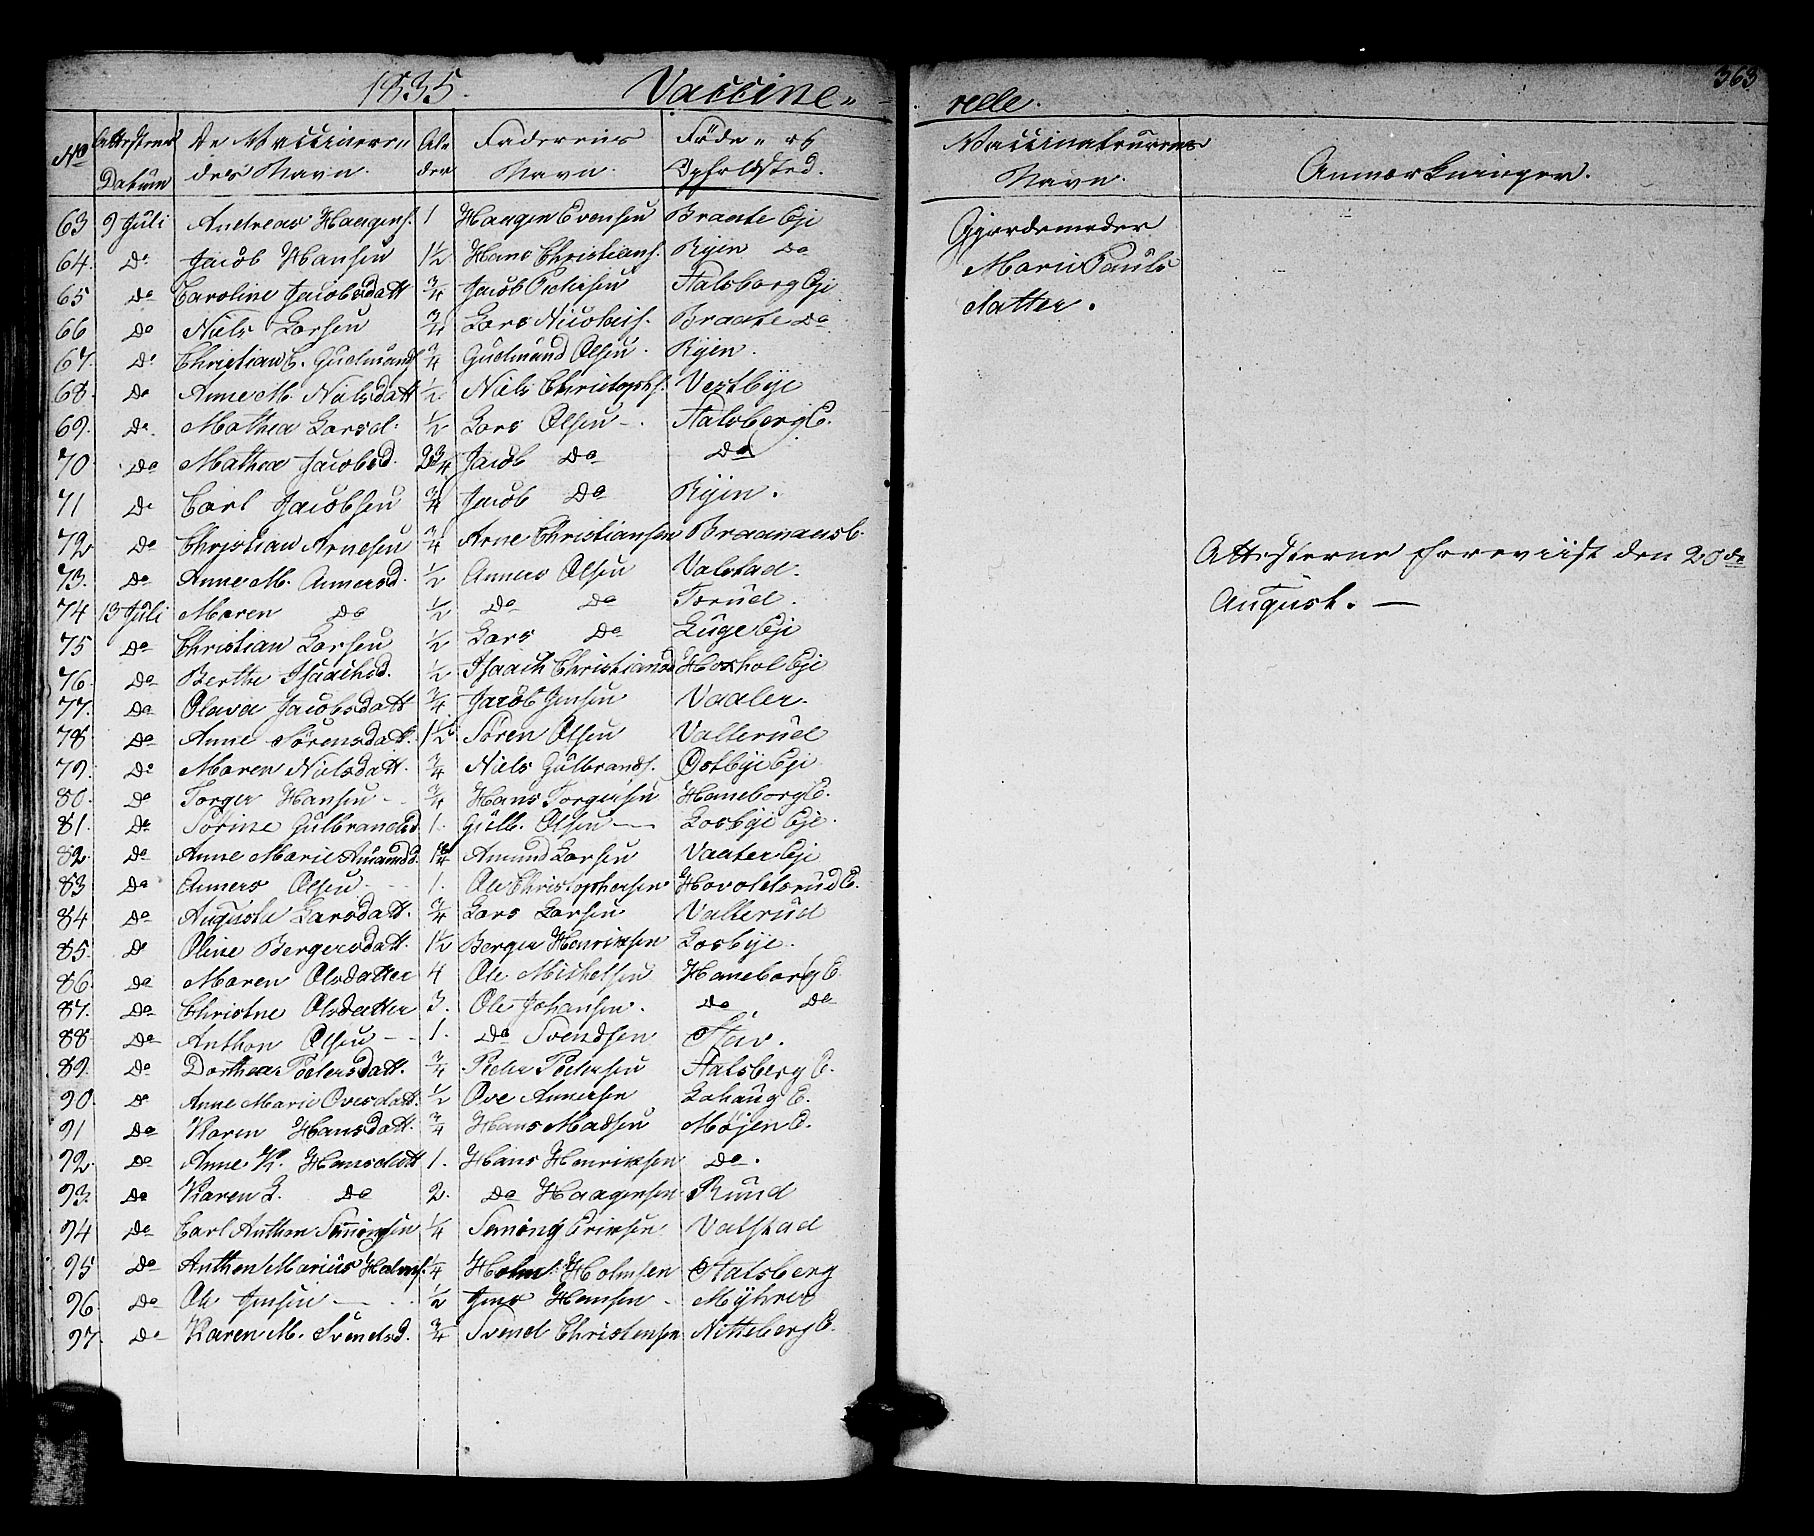 1835. Vaccine-
No Attesternes Datum De Vaccineredes Navn. Alder Faderens Navn. Føde- og Opholdsted.
63 9 Juli Andreas Haagens. 1 Haagen Evensen Braate Eje
64. Do Jacob Hansen 1½ Hans Christians. Ryen Do
65 Do Caroline Jacobsdatt ¾ Jacob Pedersen Stalsberg Eje
66 Do Niels Larsen ¾ Lars Nicolais. Braate Do
67. Do Christian E. Gudmunds. ¾ Gudmund Olsen. Ryen.
68. Do Anne M. Nielsdatt ½ Niels Christophs. Vestbye
69. Do. Mathea Larsd. ½ Lars Olsen -. Stalsberg E.
70 Do Mathea Jacobsd. 2¾ Jacob Do Do
71 Do Carl Jacobsen ¾ Jacob Do Ryen.
72 Do Christian Arnesen ¾ Arne Christiansen Braanaasb.
73. Do Anne M. Annersd. ½ Anners Olsen Valstad.
74 13 Juli Maren Do ½ Do Do Torud.
75 Do Christian Larsen ½ Lars Do Luge Eje
76. Do Berthe Isaachsd. ½ Isaach Christians Hoxhol Eje
77. Do Olava Jacobsdatt ¾ Jacob Jensen Vaaler.
78 Do Anne Sørensdatt. 1½ Søren Olsen Vallerud
79. Do Maren Nielsdatt. ¾ Niels Gulbrands. Østbye Eje
80. Do Torger Hansen - - ¾ Hans Torgersen Haneborg E.
81. Do Sørine Gulbrandsd 1. Gulb. Olsen — Losbye Eje.
82 Do Anne Marie Amundsd. 1¾ Amund Larsen Vaaler Eje
83 Do Anners Olsen - - 1. Ole Christophersen Hovoldsrud E.
84 Do Auguste Larsdatt. ¾ Lars Larsen Vallerud
85. Do Oline Bergersdatt. 1½ Berger Henriksen Losbye.
86. Do Maren Olsdatter 4 Ole Michelsen Haneborg E.
87. Do Christne Olsdatter 3. Ole Johansen. Do Do
88 Do Anthon Olsen - - 1. Do Svendsen Stav.
89. Do Dorthea Pedersdatt. ¾ Peder Pedersen Stalsberg E.
90. Do Anne Marie Ovesdatt. ½ Ove Annersen Lohaug E.
91 Do Karen Hansdatt. ¾ Hans Madsen Møjen E.
92. Do Anne K. Hansdatt 1. Hans Henriksen Do.
93. Do Karen L. Do 2. Do Haagensen Rund
94 Do Carl Anthon Simonsen ¼ Simong Eriksen Valstad
95 Do Anthon Marius Holms. ¼ Holm. Holmsen Stalsberg
96 Do Ole Jensen — ½ Jens Hansen - Myhrer
97. Do Karen M. Svendsd. ¾ Svend Christensen Nitteberg E.
363
relle.
Vaccinateurens Navn. Anmærkninger.
Gjordemoder
Marie Pauls
datter.
Attesterne foreviist den 20de
August. —